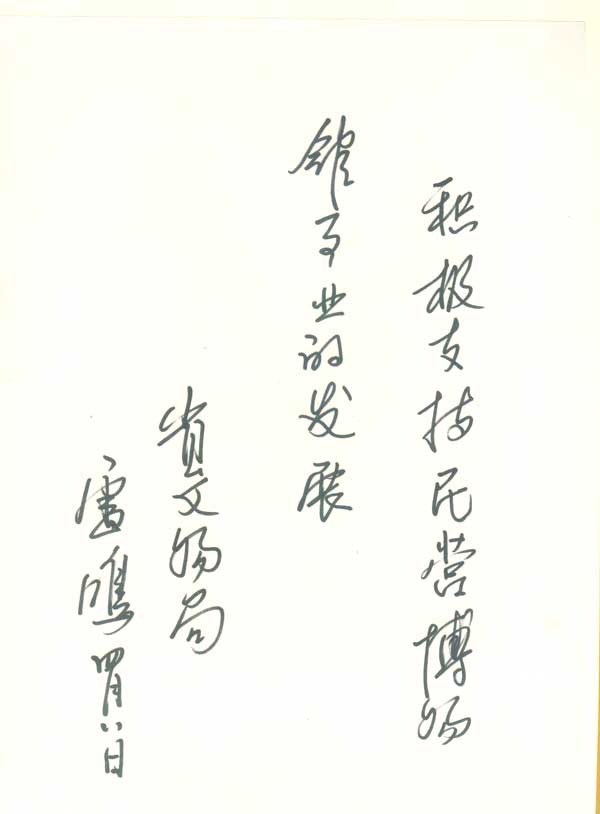 积极支持民营博物
馆事业的发展
省文物局
四月八日